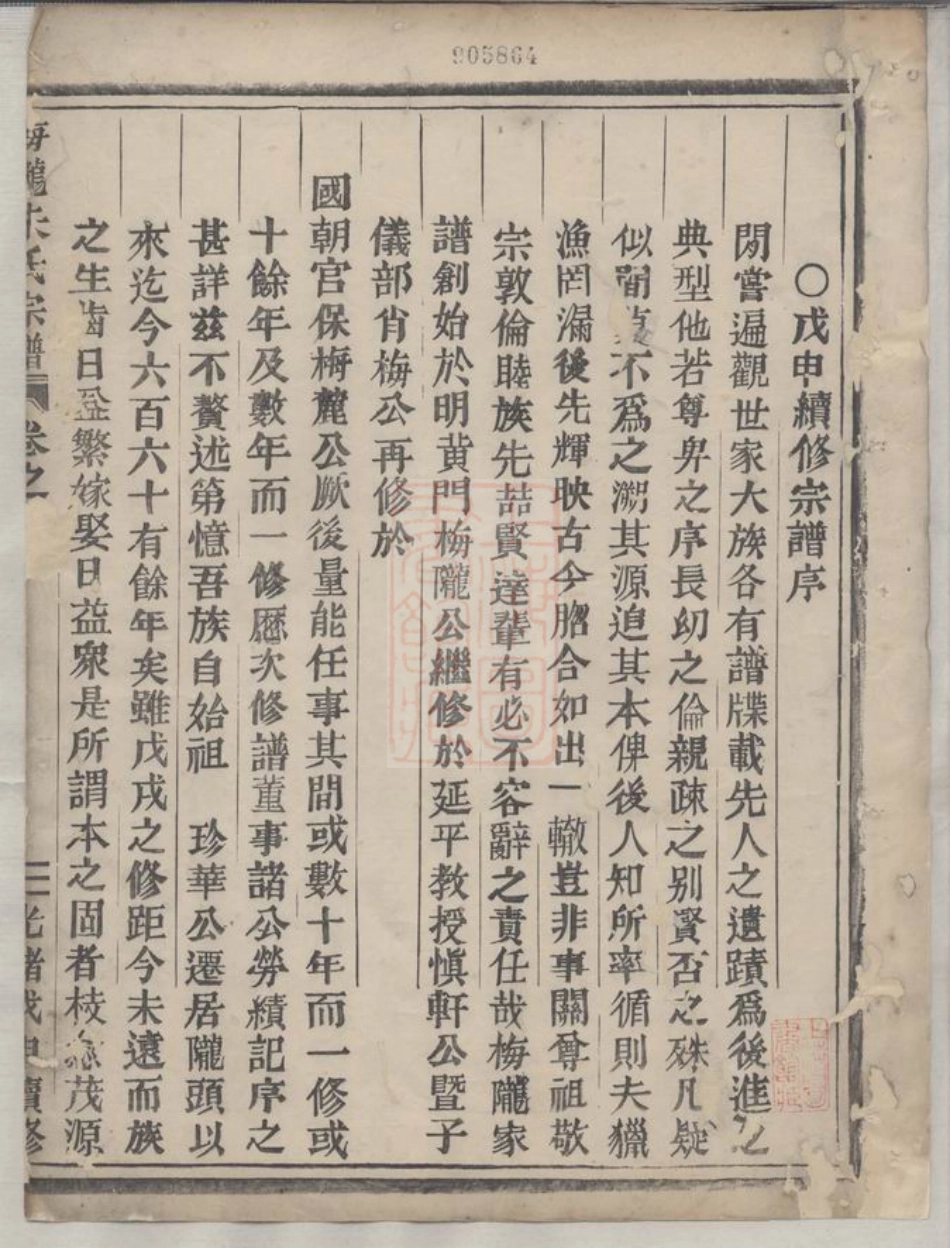 905864
○戊申續修宗譜序
閒嘗遍觀世家大族各有譜牒載先人之遺蹟爲後進之
典型他若尊卑之序長幼之倫親疎之别賢否之殊凡疑
似間莫不爲之溯其源追其本俾後人知所率循則夫獵
漁罔漏後先輝映古今脗合如出一轍豈非事關尊祖敬
宗敦倫睦族先喆賢達輩有必不容辭之責任哉梅隴家
譜創始於明黄門梅隴公繼修於延平教授慎軒公暨子
儀部肖梅公再修於
國朝宫保梅麓公厥後量能任事其間或數十年而一修或
十餘年及數年而一修歷次修譜董事諸公勞績記序之
甚詳兹不贅述第憶吾族自始祖 珍華公遷居隴頭以
來迄今六百六十有餘年矣雖戊戌之修距今未遠而族
之生齒日益繁嫁娶日益衆是所謂本之固者枝茂源
隴朱氏宗譜 卷之 二 光緒戊申續修